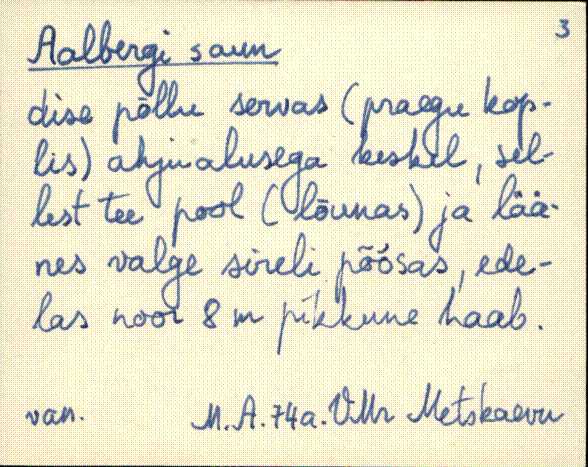 3
Aalbergi saun
dise põllu servas (praegu kop-
lis) ahjualusega keskel, sel-
lest tee pool (lõunas) ja lää-
nes valge sireli põõsas, ede-
las noor 8 m pikkune haab.
van. M.A. 74a. VMr Metskaevu